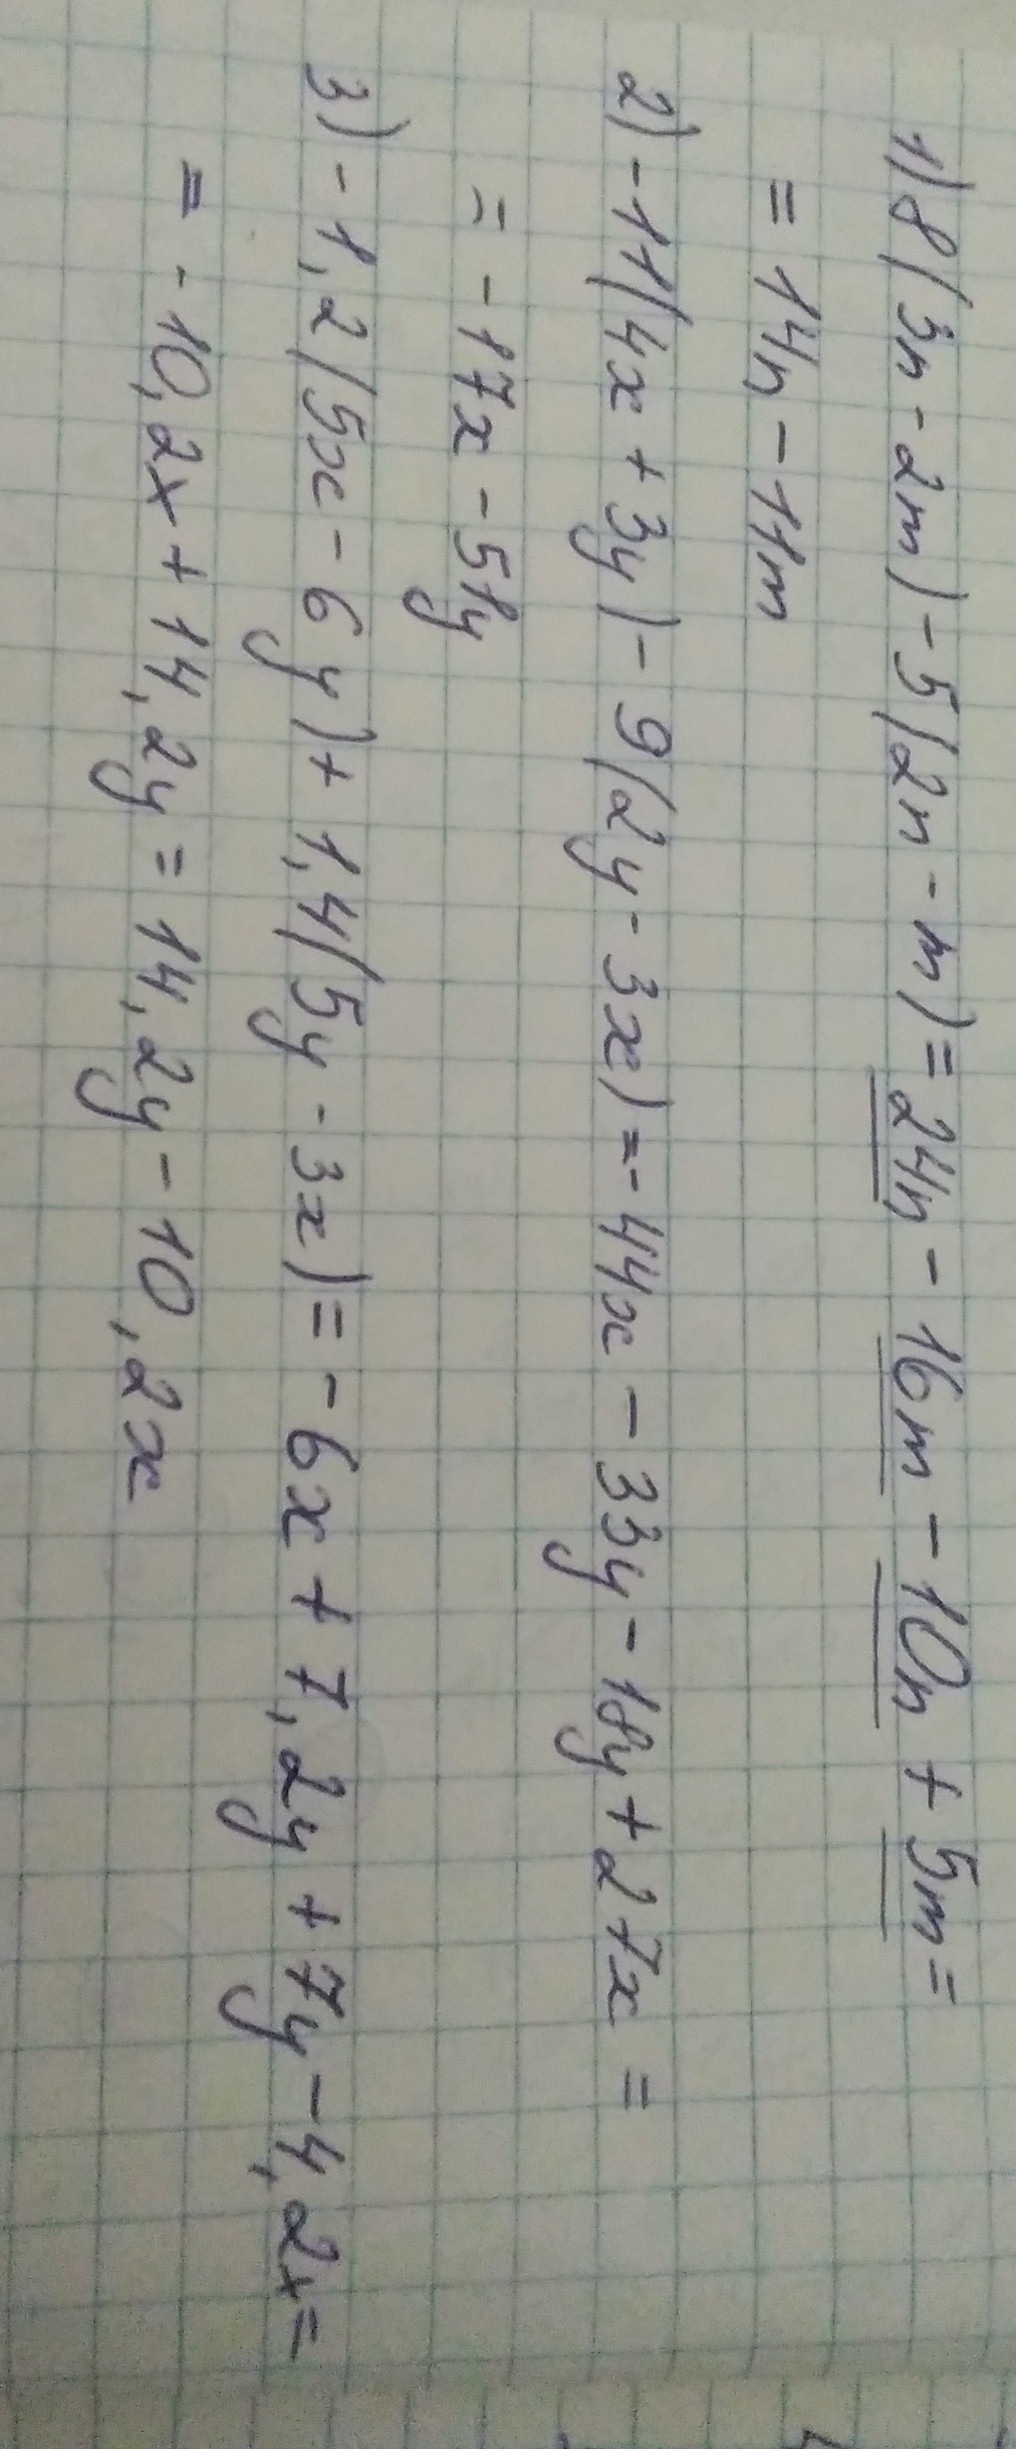 1) 8(3n - 2m) - 5(2n - m) = 24n - 16m - 10n + 5m =
= 14n - 11m
2) - 11(4x + 3y) - 9(2y - 3x) = - 44x - 33y - 18y + 27x =
= - 17x - 51y
3) - 1,2(5x - 6y) + 1,4(5y - 3x) = - 6x + 7,2y + 7y - 4,2x =
= - 10,2x + 14,2y = 14,2y - 10,2x